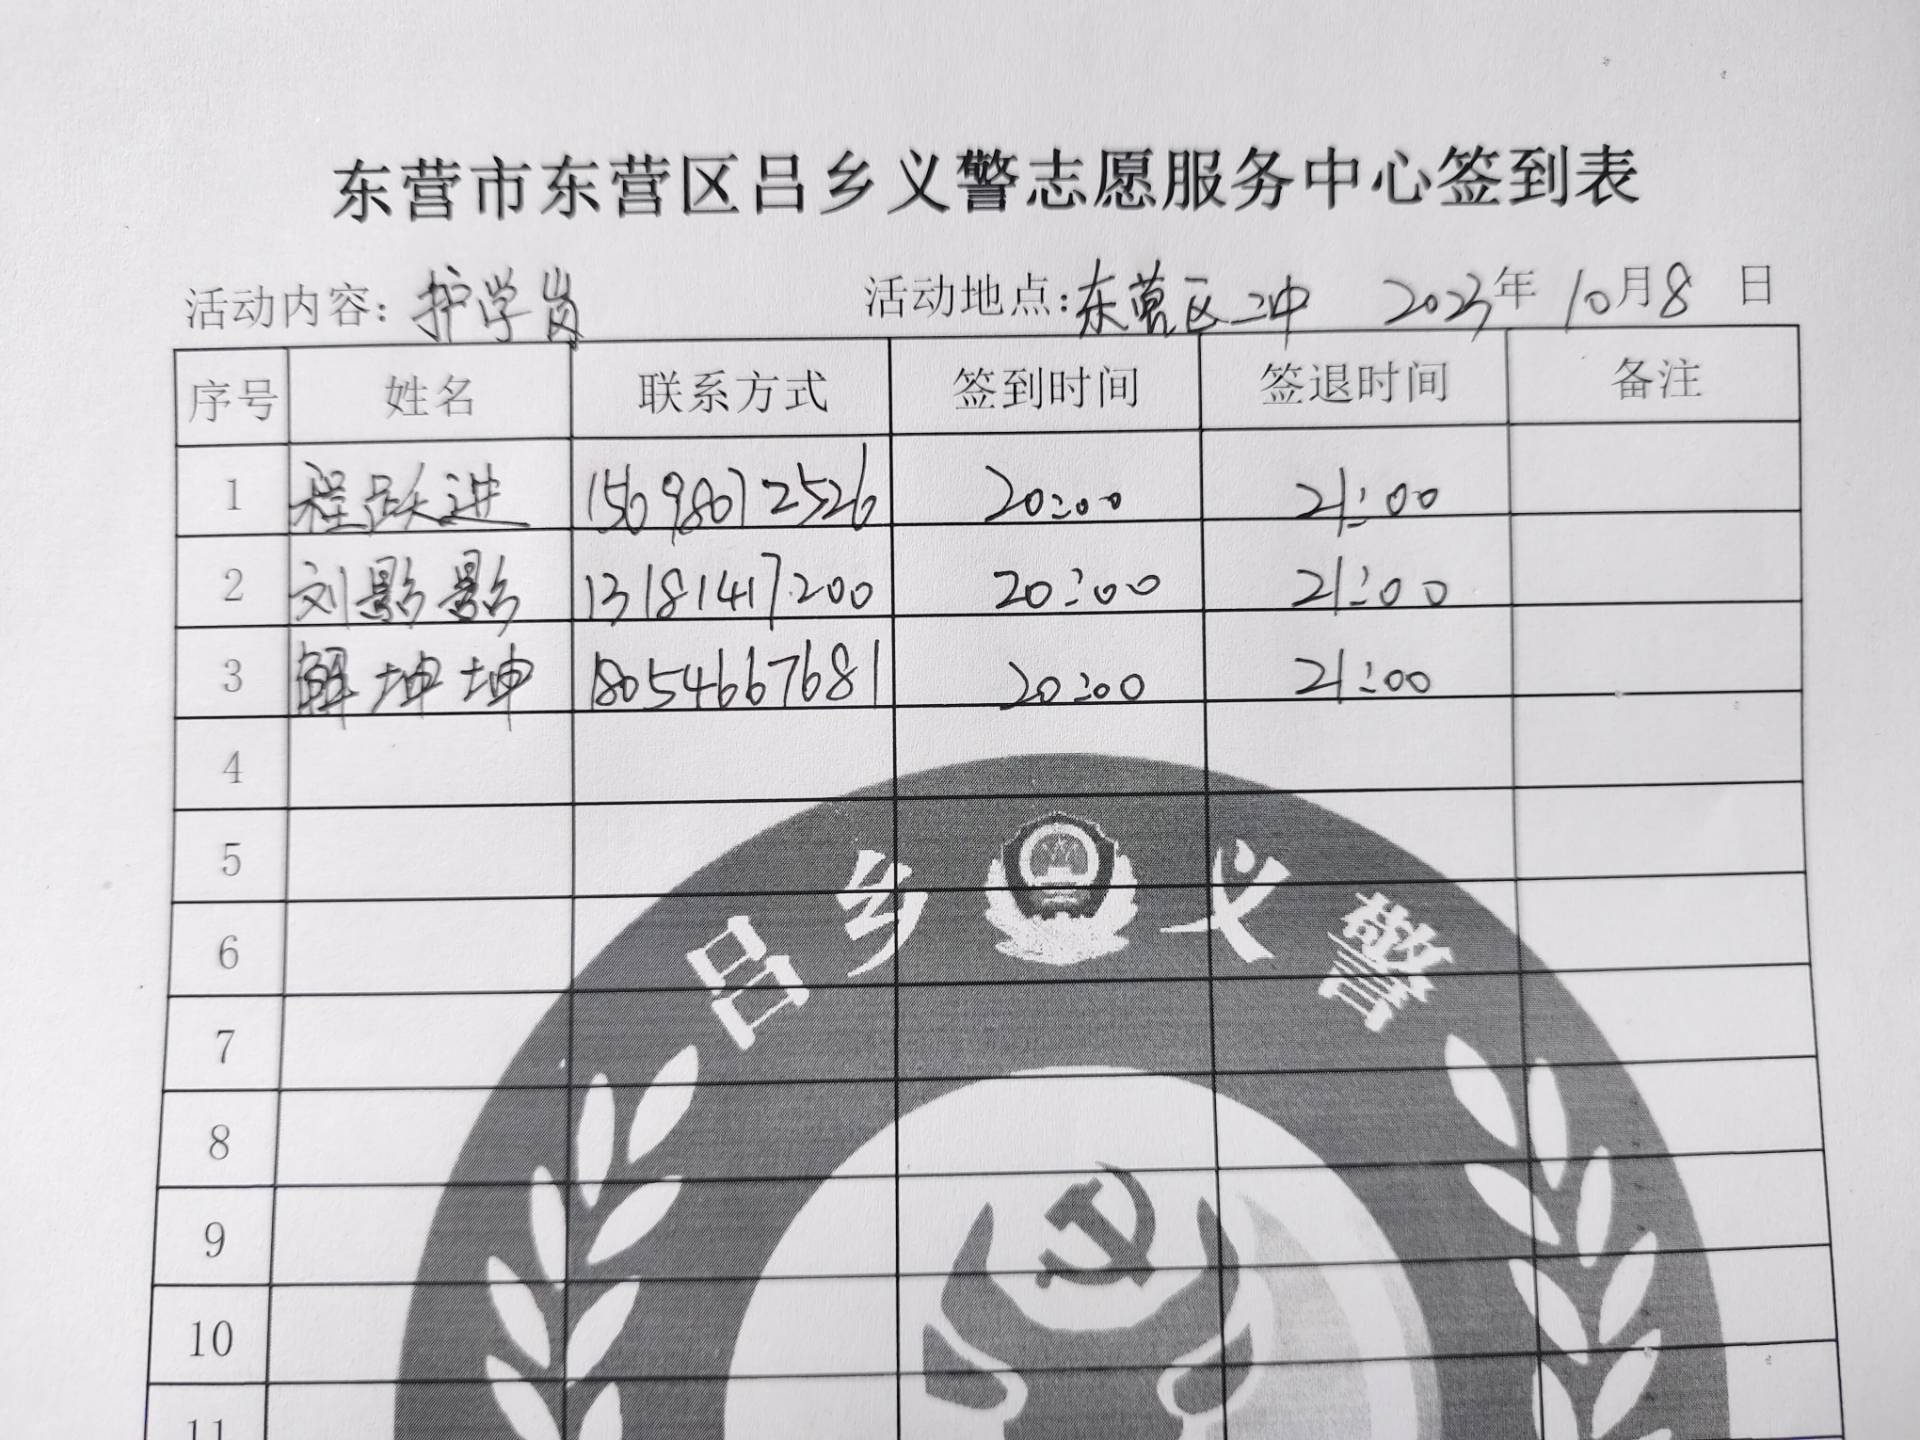 东营市东营区吕乡义警志愿服务中心签到表
活动内容：护学岗 活动地点：东营区二中 2023年10月8日
序号 姓名 联系方式 签到时间 签退时间 备注
1 程跃进 15698072526 20:00 21:00
2 刘影影 13181417200 20:00 21:00
3 解坤坤 18054667681 20:00 21:00
4
5
6
7
8
9
10
11
吕乡义警